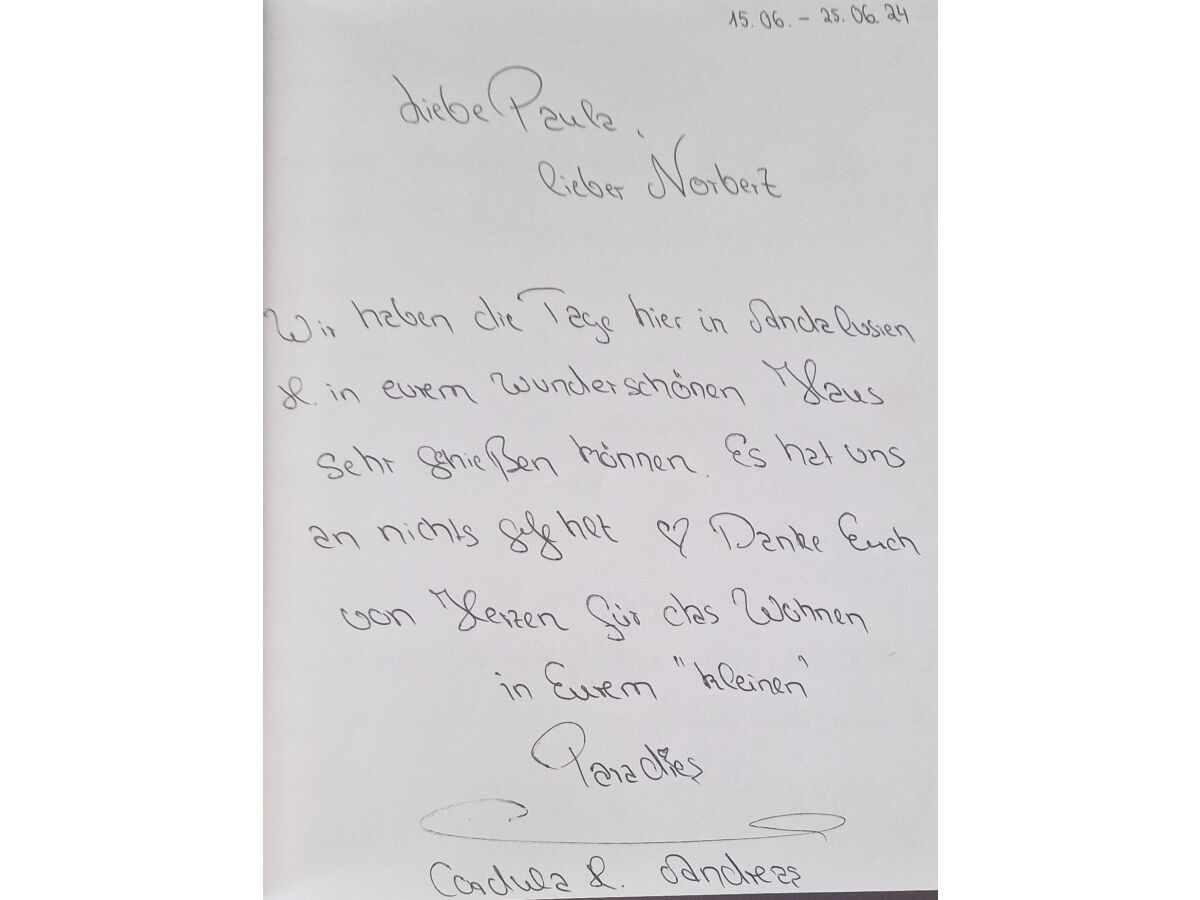 15.06. - 25.06.24
Liebe Paula,
lieber Norbert
Wir haben die Tage hier in Andalusien
& in eurem wunderschönen Haus
sehr genießen können. Es hat uns
an nichts gefehlt ♡ Danke Euch
von Herzen für das Wohnen
in Eurem "kleinen"
Paradies
Cordula & Andreas